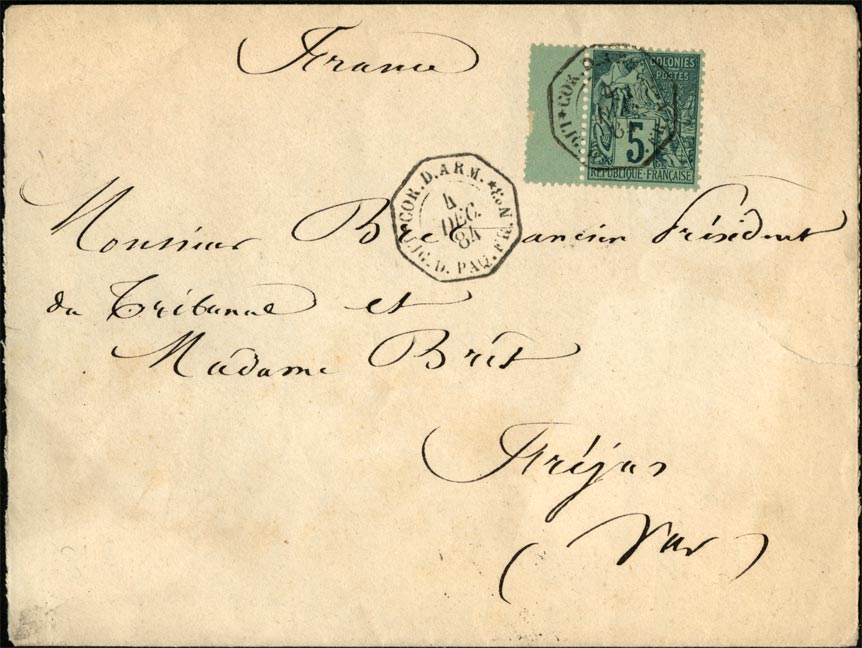 France
COLONIES
POSTES
5
RÉPUBLIQUE FRANÇAISE
COR. D. ARM.
4
DEC.
84
LIG. D. PAQ. FR. N°3
Monsieur Bret ancien Président
du Tribunal et
Madame Bret
Fréjus
(Var)